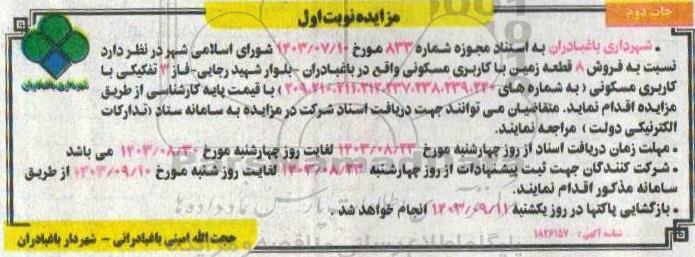 مزایده نوبت اول
چاپ دوم
شهرداری باغبادران
• شهرداری باغبادران به استناد مجوزه شماره ۸۳۳ مورخ ۱۴۰۳/۰۷/۱۰ شورای اسلامی شهر در نظر دارد
نسبت به فروش ۸ قطعه زمین با کاربری مسکونی واقع در باغبادران - بلوار شهید رجایی- فاز ۳ تفکیکی با
کاربری مسکونی ( به شماره های ۲۰۹،۲۱۰،۲۱۱،۲۱۲،۲۳۷،۲۳۸،۲۳۹،۲۴۰ ) با قیمت پایه کارشناسی از طریق
مزایده اقدام نماید. متقاضیان می توانند جهت دریافت اسناد شرکت در مزایده به سامانه ستاد (تدارکات
الکترنیکی دولت ) مراجعه نمایند.
• مهلت زمان دریافت اسناد از روز چهارشنبه مورخ ۱۴۰۳/۰۸/۲۳ لغایت روز چهارشنبه مورخ ۱۴۰۳/۰۸/۳۰ می باشد
• شرکت کنندگان جهت ثبت پیشنهادات از روز چهارشنبه ۱۴۰۳/۰۸/۲۳ لغایت روز شنبه مورخ ۱۴۰۳/۰۹/۱۰ از طریق
سامانه مذکور اقدام نمایند.
• بازگشایی پاکتها در روز یکشنبه ۱۴۰۳/۰۹/۱۱ انجام خواهد شد .
شناسه آگهی: ۱۸۲۶۱۵۷
حجت الله امینی باغبادرانی - شهردار باغبادران